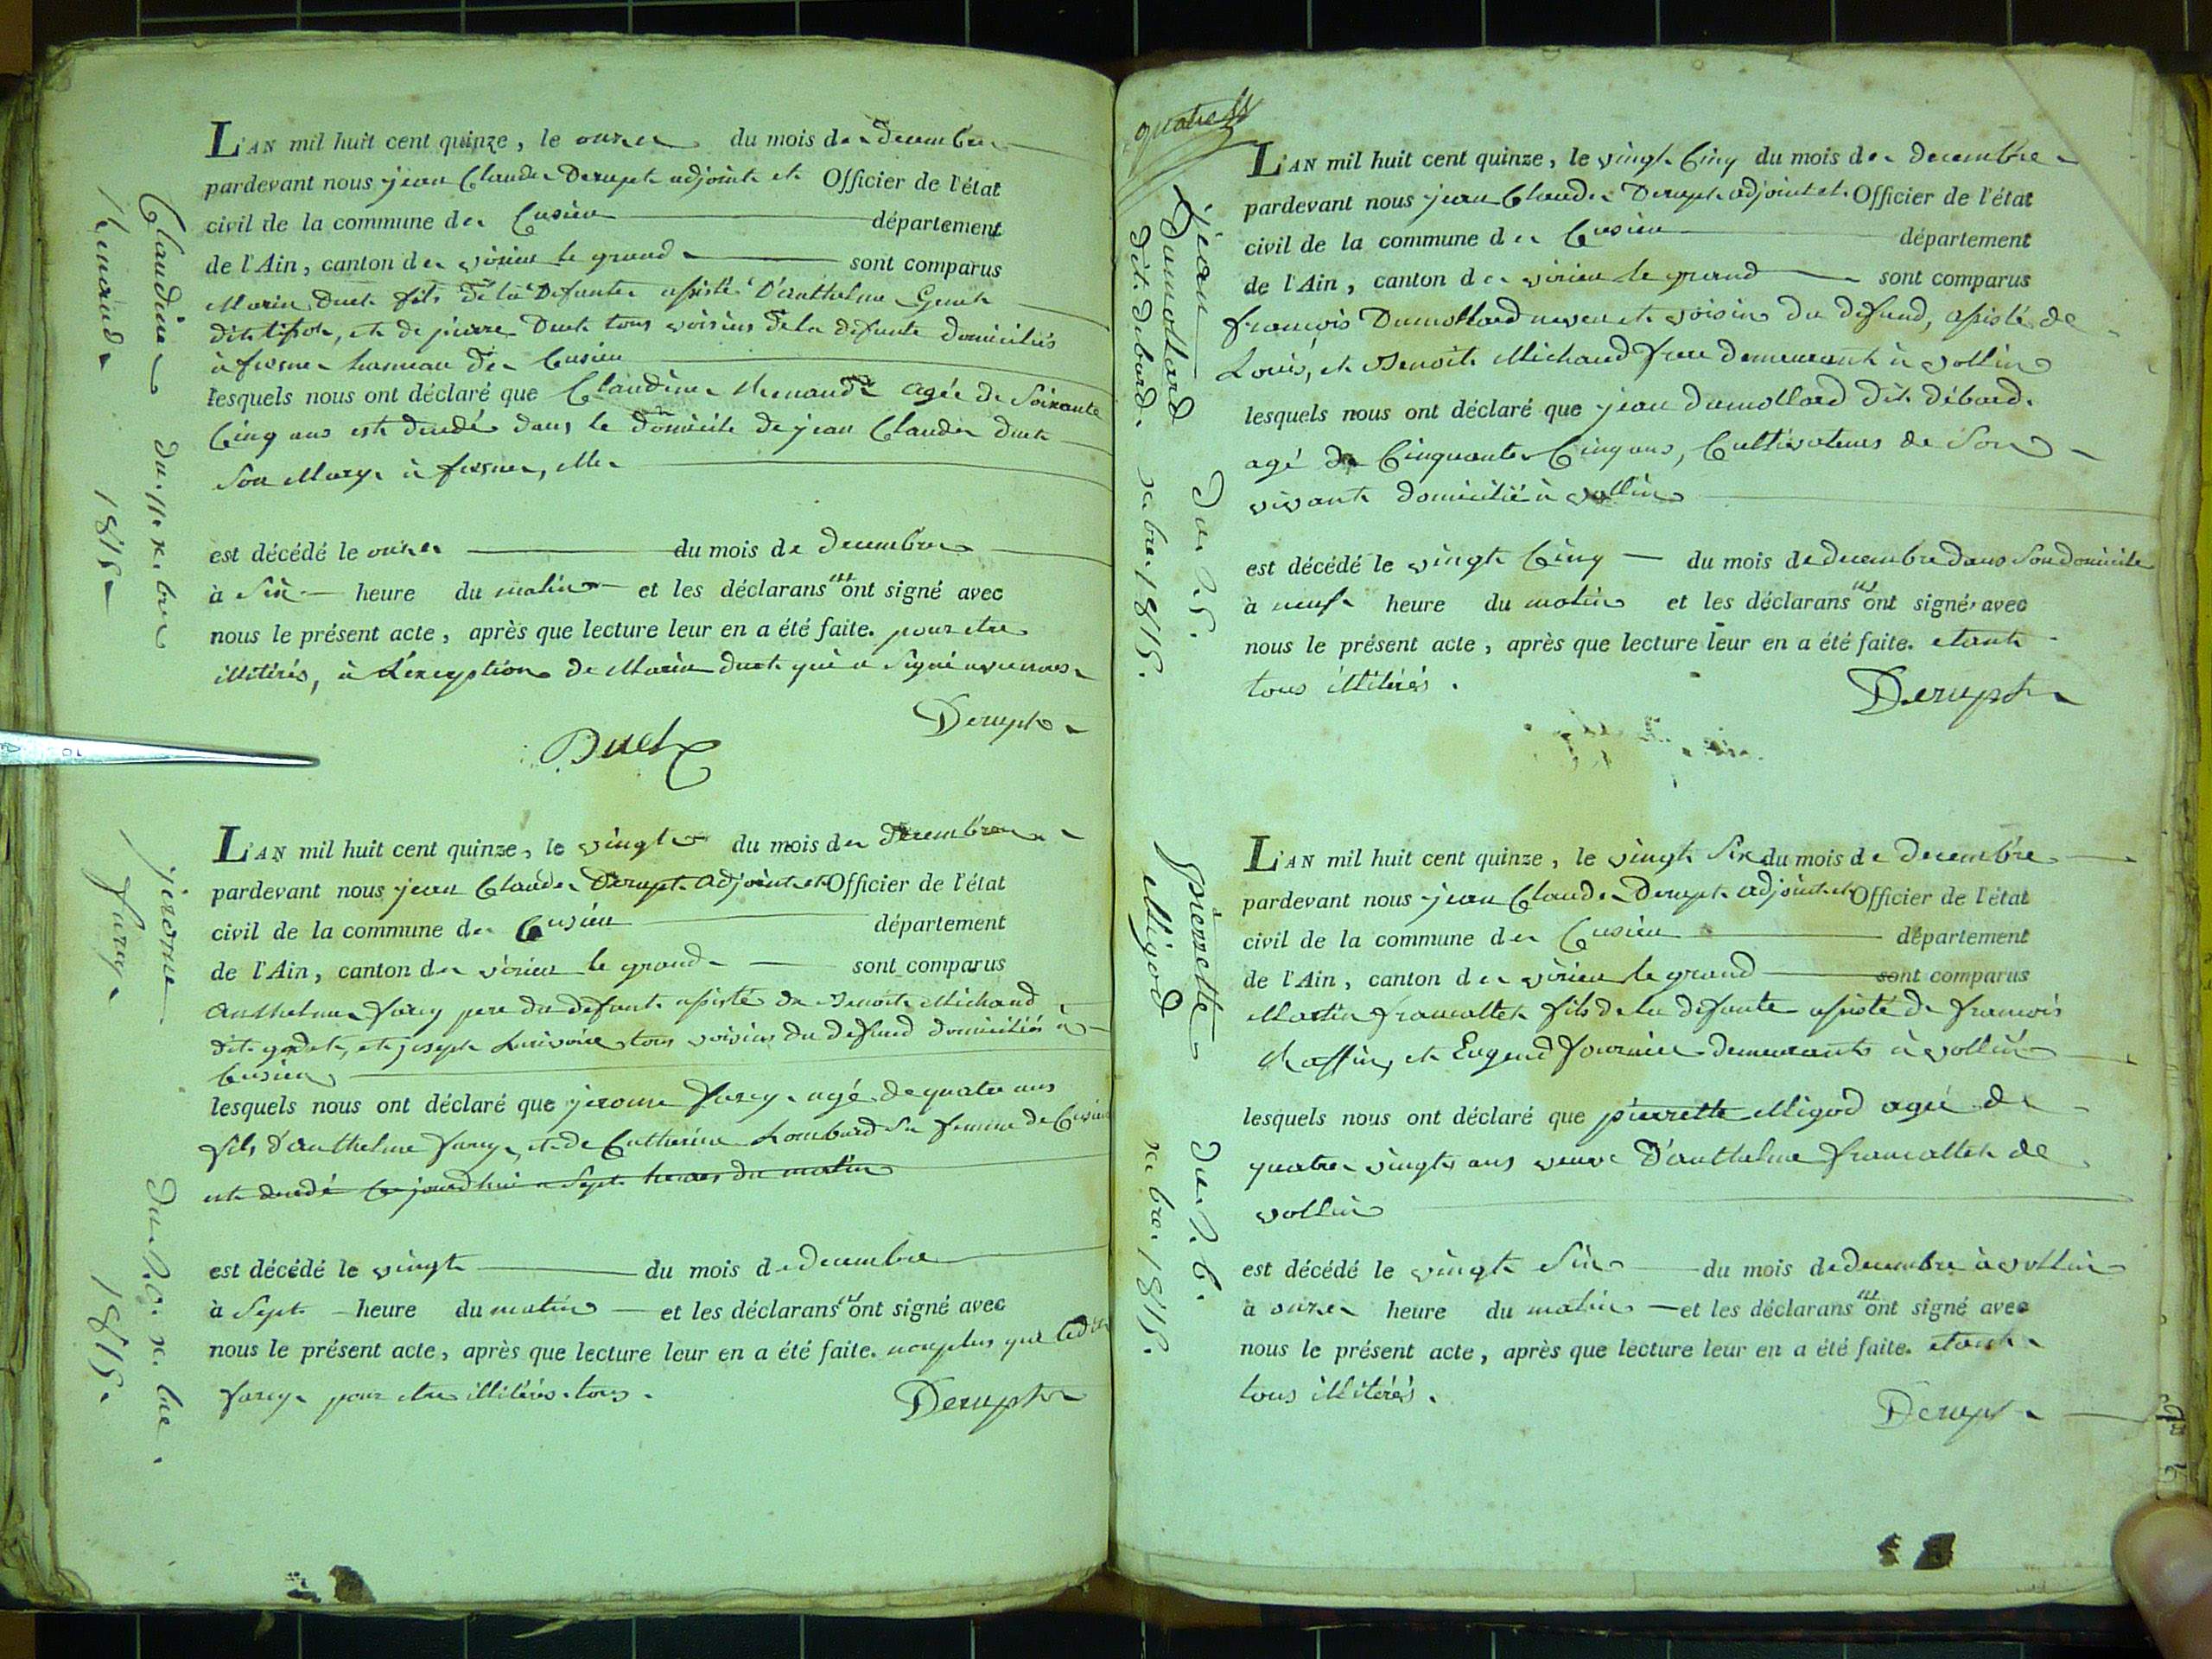 Claudine Renaud du 11 xbre 1815
L'AN mil huit cent quinze, le onze du mois de decembre
pardevant nous jean Claude Derupt adjoint et Officier de l'état
civil de la commune de Cusieu département
de l'Ain, canton de virieu le grand sont comparus
Marin Duet fils de la Défunte assisté D'anthelme Genet
dit, et de pierre Duet tous voisins de la défunte domiciliés
à hameau de Cusieu
lesquels nous ont déclaré que Claudine Renaud agée de Soixante
Cinq ans est decedé dans le domicile de jean Claude duet
Son Mary à
est décédé le onze du mois de decembre
à Six heure du matin et les déclarans n'ont signé avec
nous le présent acte, après que lecture leur en a été faite. pour etre
illitérés, à L'exception de Marin duet qui a Signé avec nous
Derupt
Duet
jerome farcy du 20 xbre 1815
L'AN mil huit cent quinze, le vingt du mois de Decembre
pardevant nous jean Claude Derupt adjoint et Officier de l'état
civil de la commune de Cusieu département
de l'Ain, canton de virieu le grand sont comparus
Anthelme farcy pere du defunt assisté de Benoit Michaud
dit godet, et joseph tous voisins du defund domiciliés à
Cusieu
lesquels nous ont déclaré que jerome farcy agé de quatre ans
fils d'anthelme farcy et de Catherine Lombard Sa femme de Cusieu
est decedé Cejourdhui a Sept heures du matin
est décédé le vingt du mois de decembre
à Sept heure du matin et les déclarans n'ont signé avec
nous le présent acte, après que lecture leur en a été faite. non plus que ledit
farcy pour etre illitérés tous.
Derupt
quatre
jean Dumollard dit debard. Du 25. xbre 1815.
L'AN mil huit cent quinze, le vingt Cinq du mois de decembre
pardevant nous jean Claude Derupt adjoint et Officier de l'état
civil de la commune de Cusieu département
de l'Ain, canton de virieu le grand sont comparus
francois Dumollard neveu et voisin du defund, assisté de
Louis, et Benoit Michaud frere demeurant à vollin
lesquels nous ont déclaré que jean dumollard dit débard.
agé de Cinquante Cinq ans, Cultivateur de Son
vivant domicilié à vollin
est décédé le vingt Cinq du mois de decembre dans Son domicile
à neuf heure du matin et les déclarans n'ont signé avec
nous le présent acte, après que lecture leur en a été faite. etant
tous illitérés.
Derupt
pierrette Migod du 26. xbre 1815.
L'AN mil huit cent quinze, le vingt Six du mois de decembre
pardevant nous jean Claude Derupt adjoint et Officier de l'état
civil de la commune de Cusieu département
de l'Ain, canton de virieu le grand sont comparus
Martin francallet fils de la defunte assisté de francois
Chaffin, et Eugend fournier demeurants à vollin
lesquels nous ont déclaré que pierrette Migod agée de
quatre vingts ans veuve D'anthelme francallet de
vollin
est décédé le vingt Six du mois de decembre à vollin
à onze heure du matin et les déclarans n'ont signé avec
nous le présent acte, après que lecture leur en a été faite. etant
tous illitérés.
Derupt